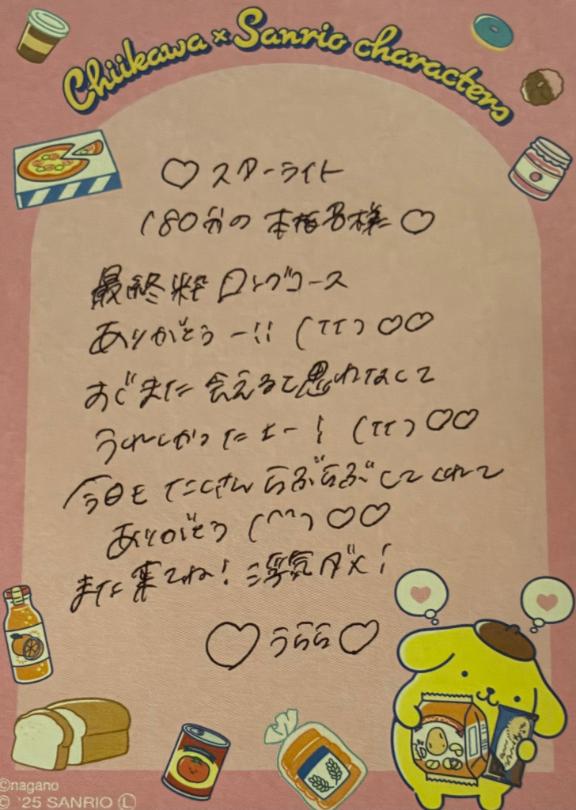 Chiikawa × Sanrio characters
♡スターライト
180分の本指名様♡
最終枠ロングコース
ありがとうー!! (TT) ♡♡
すぐまた会えると思わなくて
うれしかったよー! (TT) ♡♡
今日もたくさんらぶらぶしてくれて
ありがとう (^^) ♡♡
また来てね! 浮気ダメ!
♡うらら♡
©nagano
© '25 SANRIO Ⓛ